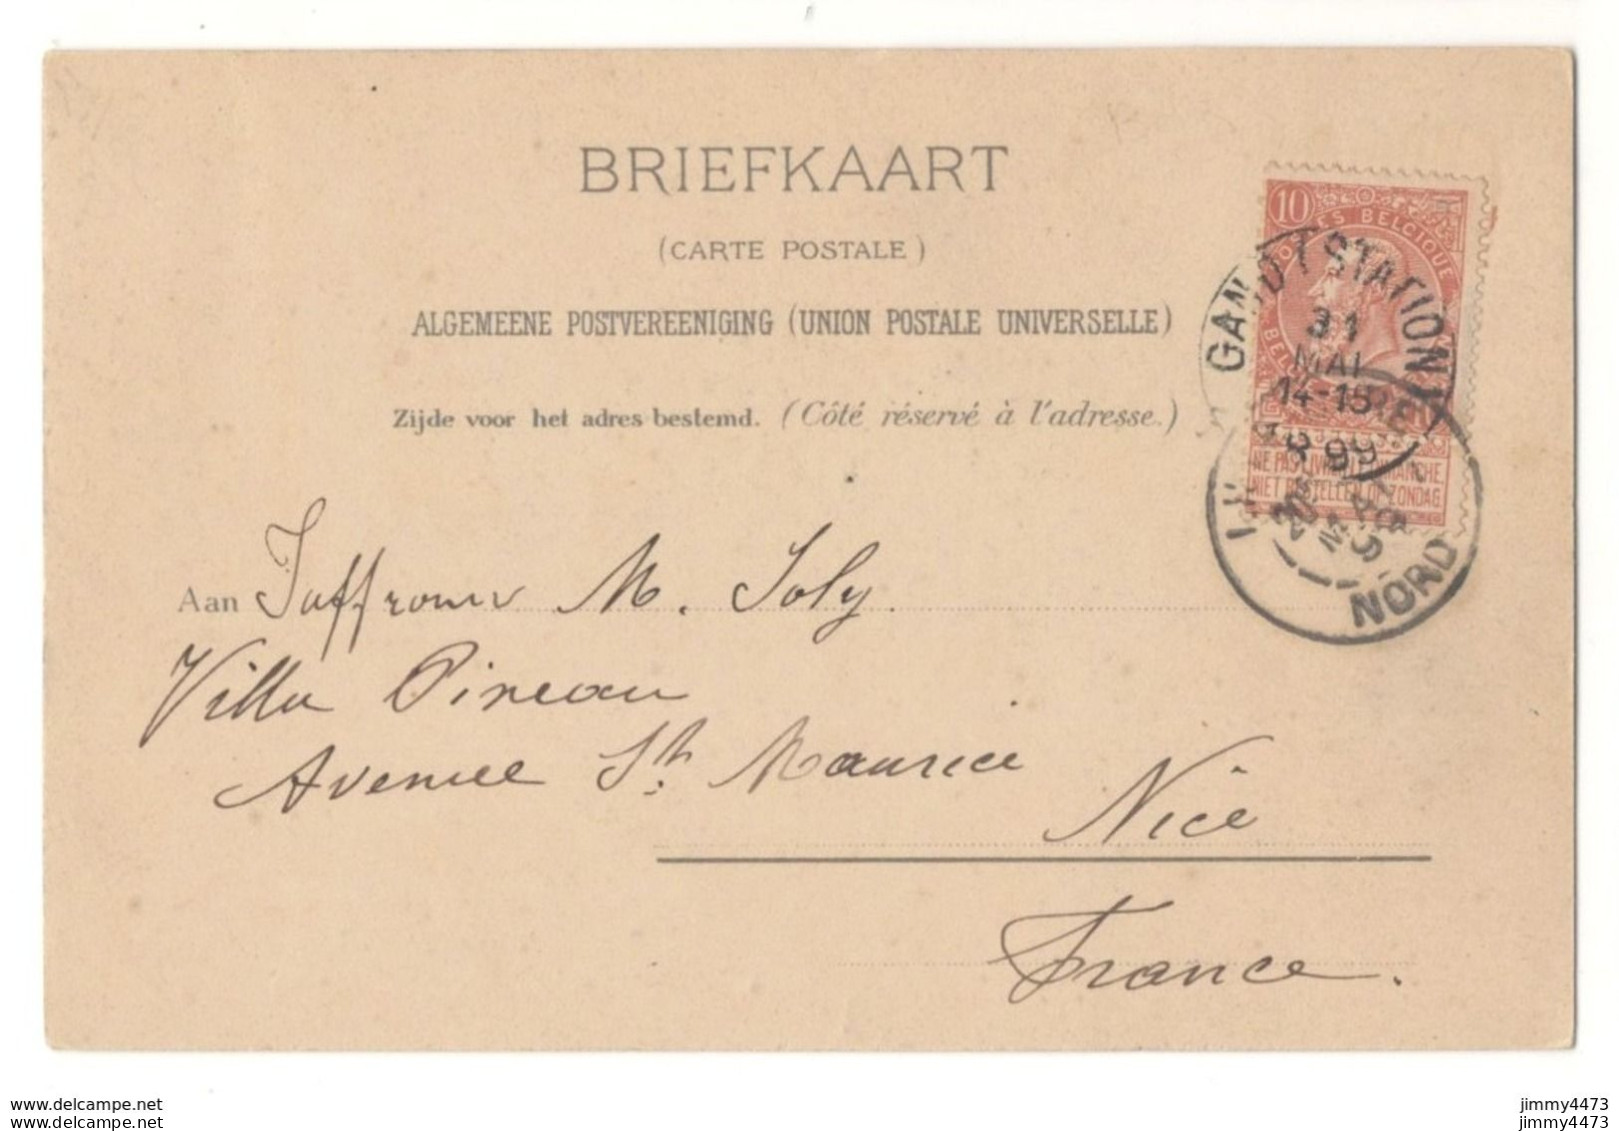 BRIEFKAART
(CARTE POSTALE)
ALGEMEENE POSTVEREENIGING (UNION POSTALE UNIVERSELLE)
Zijde voor het adres bestemd. (Côté réservé à l'adresse.)
10
POSTES BELGIQUE
NE PAS LIVRER LE DIMANCHE
NIET BESTELLEN OP ZONDAG
GAND (STATION)
31
MAI
14-15
99
NORD
Aan Juffrouw M. Joly.
Villa
Avenue St. Maurice
Nice
France.
www.delcampe.net
www.delcampe.net
jimmy4473
jimmy4473